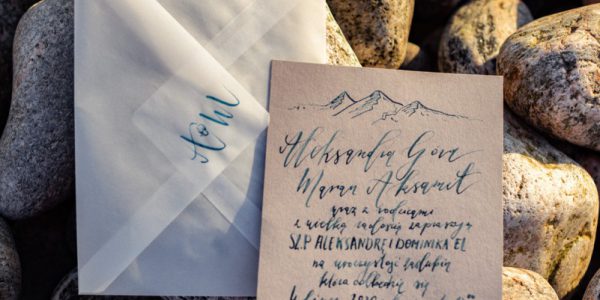 Aleksandra Góra
Maran Aksamit
wraz z rodzicami
z wielką radością zapraszają
SZ.P ALEKSANDRĘ I DOMINIKA EL
na uroczystość zaślubin
która odbędzie się